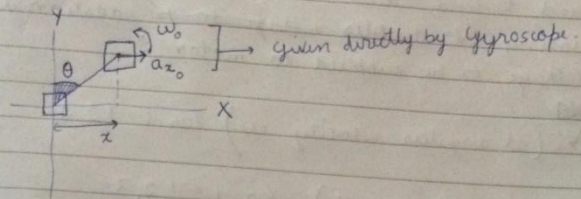 Y
ω₀
given directly by Gyroscope.
θ
aₓ₀
X
x